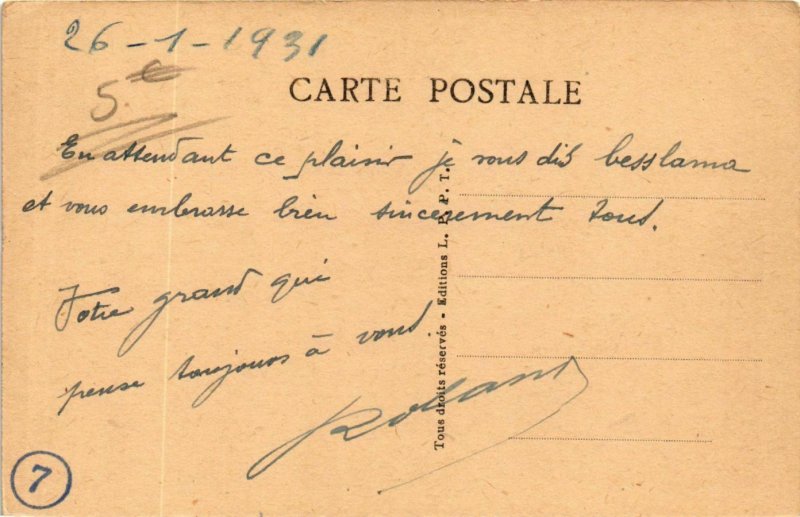 26-1-1931
5c
CARTE POSTALE
En attendant ce plaisir je vous dis besslama
et vous embrasse bien sincèrement tous.
Votre grand qui
pense toujours à vous
Rolland
Tous droits réservés - Editions L. P. P. T.
7